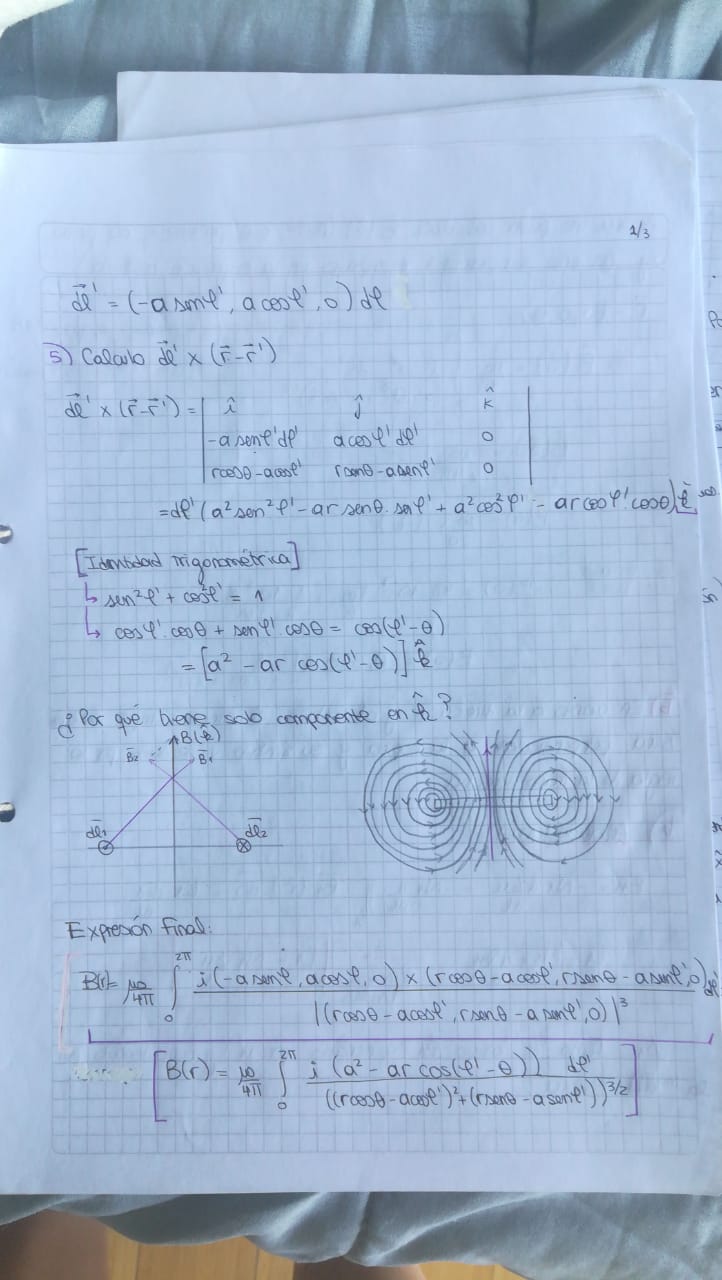 2/3
dl⃗' = (-a senφ', a cosφ', 0) dφ
5) Calculo dl⃗' × (r⃗-r⃗')
dl⃗' × (r⃗-r⃗') = | î ĵ k̂ |
-a senφ'dφ' a cosφ'dφ' 0
rcosθ-acosφ' rsenθ-asenφ' 0
=dφ' (a² sen²φ' - ar senθ. senφ' + a² cos²φ' - ar cosφ' cosθ) k̂
[Identidad Trigonométrica]
↳ sen²φ' + cos²φ' = 1
↳ cosφ' cosθ + senφ' cosθ = cos(φ'-θ)
= [a² - ar cos(φ'-θ)] k̂
¿Por qué tiene solo componente en k̂?
B(k̂)
B⃗₂ B⃗₁
dl⃗₁ dl⃗₂
Expresión final:
B(r)= μ₀/4π ∫₀^2π i(-a senφ, a cosφ, 0) × (r cosθ - a cosφ', r senθ - a senφ', 0) dφ' / |(rcosθ - acosφ', rsenθ - a senφ', 0)|³
B(r) = μ₀/4π ∫₀^2π i (a² - ar cos(φ' - θ)) dφ' / ((rcosθ - acosφ')² + (rsenθ - a senφ'))^3/2